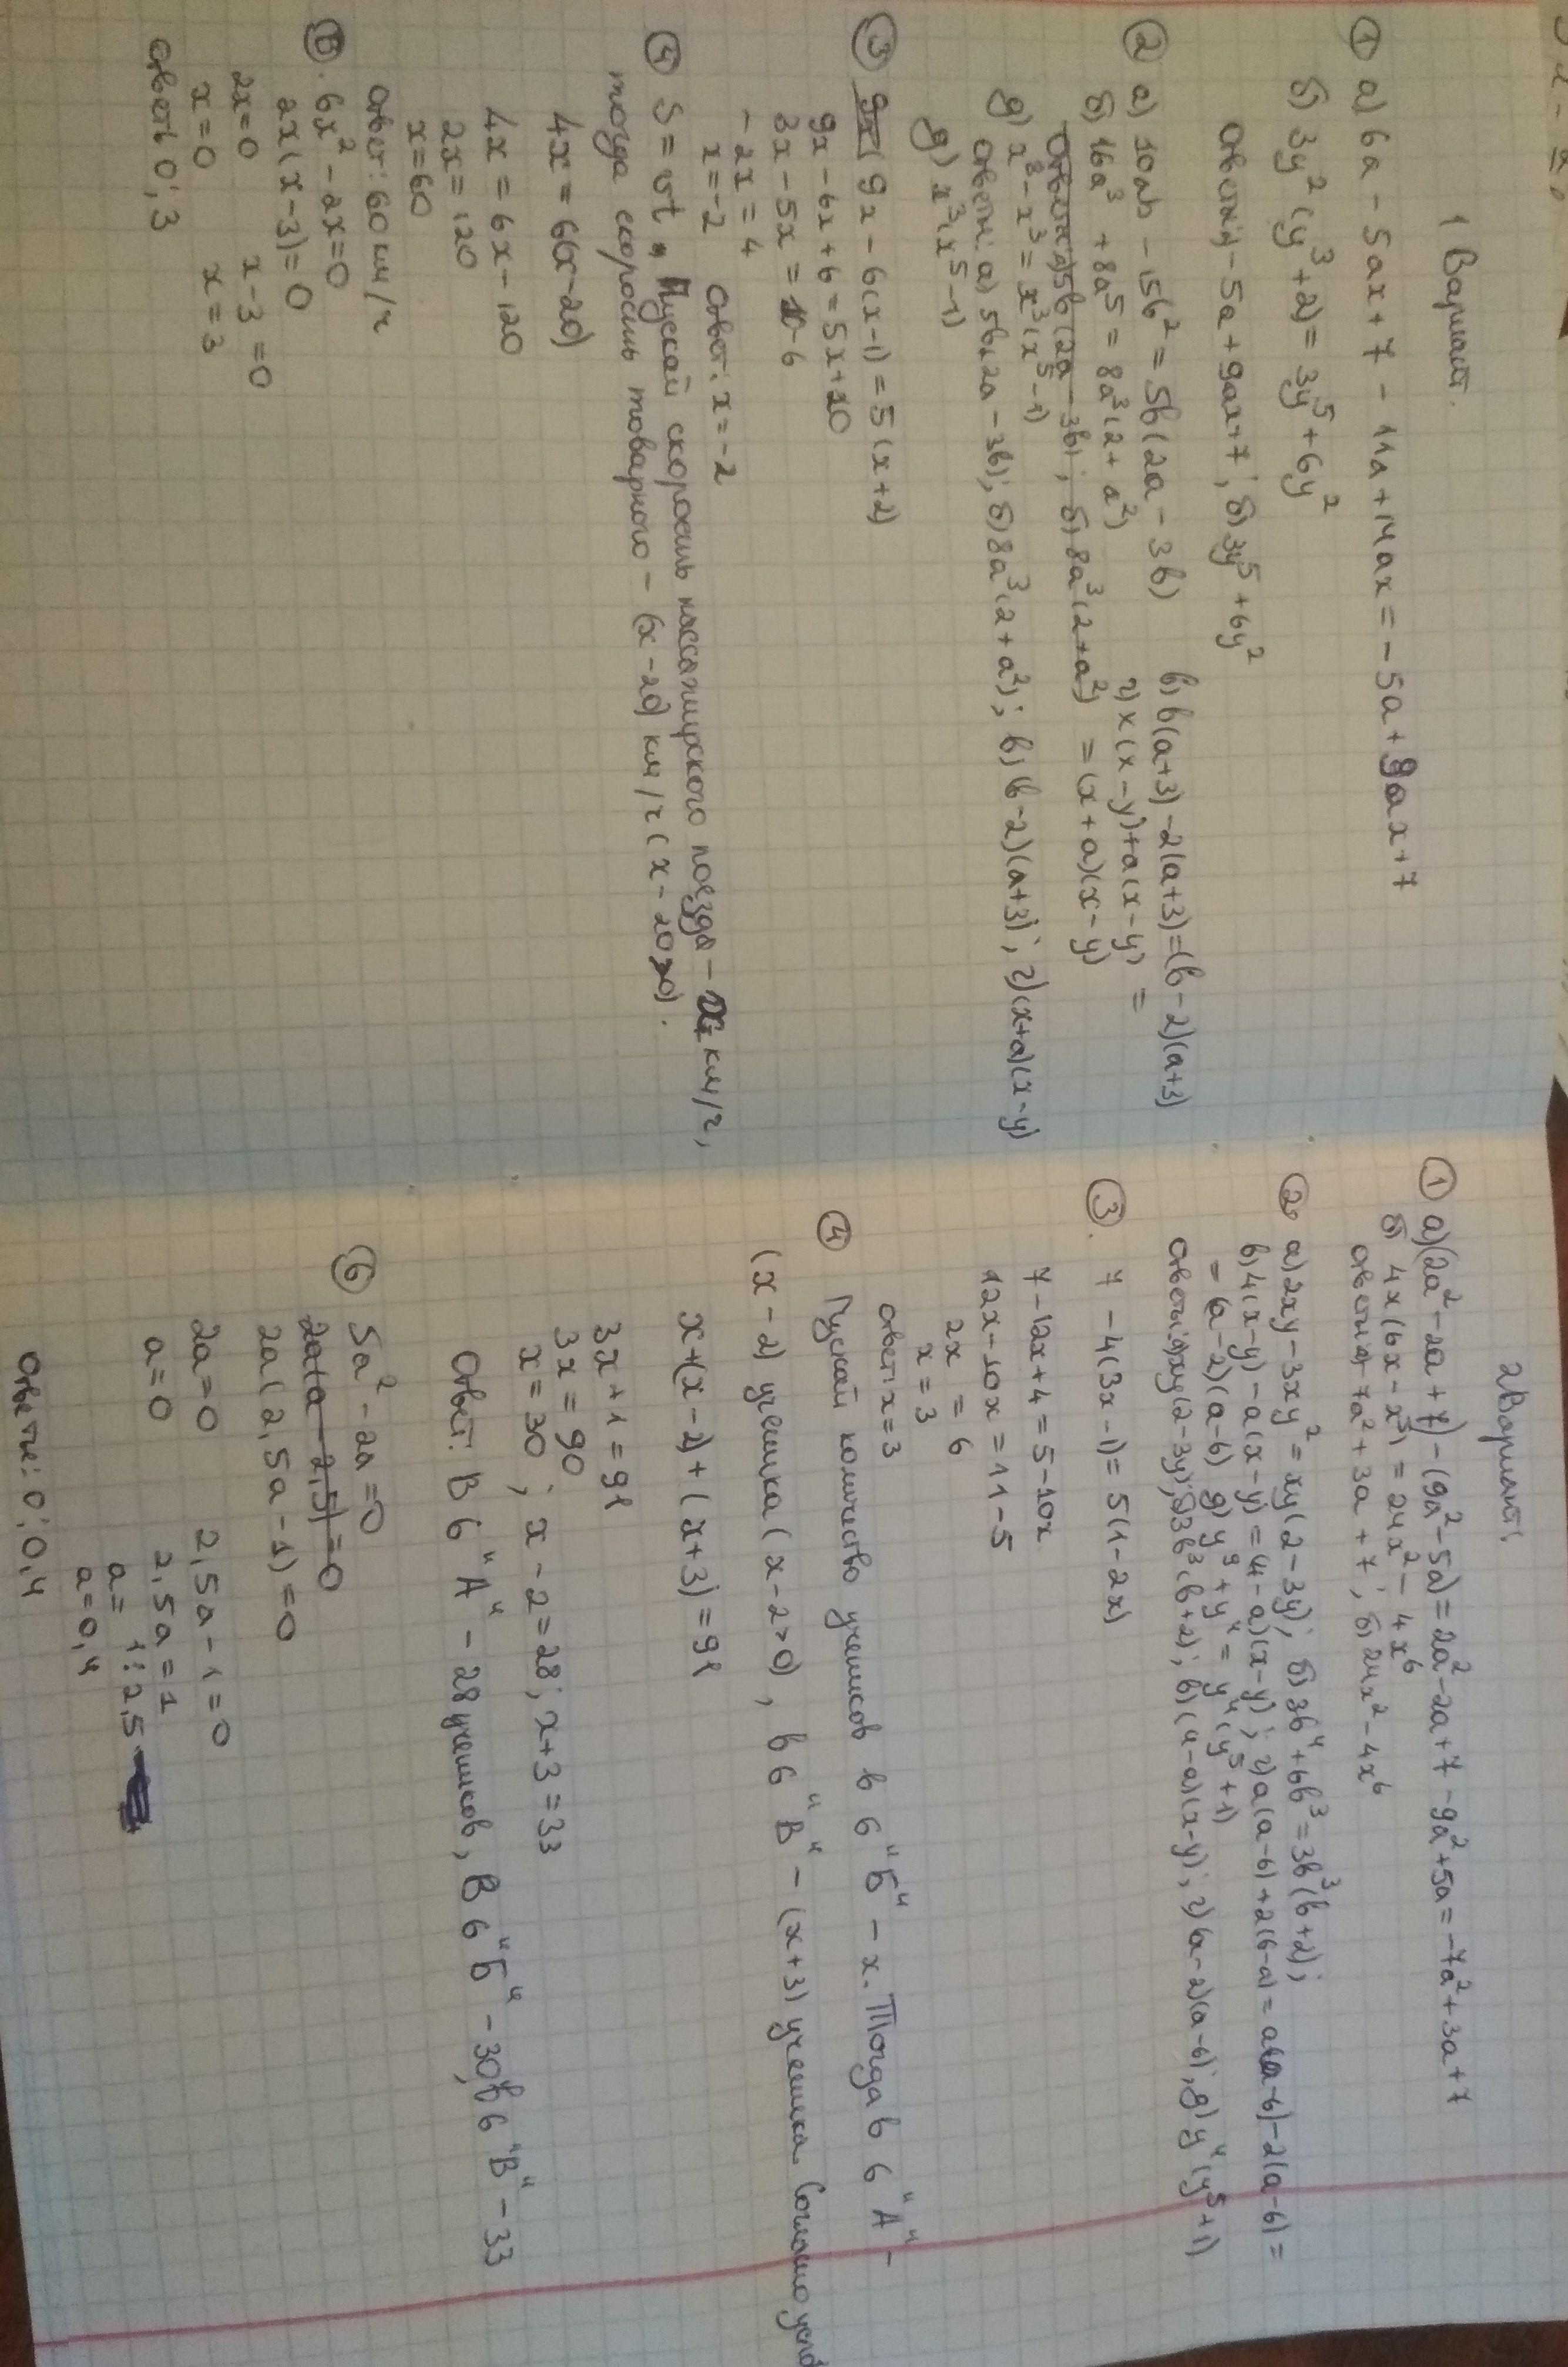 1 Вариант.
① а) 6a - 5ax + 7 - 11a + 14ax = - 5a + 9ax + 7
б) 3y² (y³ + 2) = 3y⁵ + 6y²
Ответы: - 5a + 9ax + 7; б) 3y⁵ + 6y²
② а) 10ab - 15b² = 5b(2a - 3b)
б) 16a³ + 8a⁵ = 8a³(2 + a²)
в) b(a+3) - 2(a+3) = (b - 2)(a+3)
г) x(x - y) + a(x - y) =
= (x + a)(x - y)
Ответы: а) 5b(2a - 3b); б) 8a³(2 + a²)
д) x⁸ - x³ = x³(x⁵ - 1)
Ответы: а) 5b(2a - 3b); б) 8a³(2 + a²); в) (b - 2)(a+3); г) (x+a)(x - y)
д) x³(x⁵ - 1)
③ 9x - 6(x - 1) = 5(x + 2)
9x - 6x + 6 = 5x + 10
3x - 5x = 10 - 6
- 2x = 4
x = - 2 Ответ: x = - 2
④ S = vt, Пускай скорость пассажирского поезда - x км/ч,
тогда скорость товарного - (x - 20) км/ч (x - 20 > 0).
4x = 6(x - 20)
4x = 6x - 120
2x = 120
x = 60
Ответ: 60 км/ч
⑥. 6x² - 2x = 0
2x(x - 3) = 0
2x = 0 x - 3 = 0
x = 0 x = 3
Ответы 0; 3
2 Вариант.
① а) (2a² - 2a + 7) - (9a² - 5a) = 2a² - 2a + 7 - 9a² + 5a = - 7a² + 3a + 7
б) 4x(6x - x⁵) = 24x² - 4x⁶
Ответы: а) - 7a² + 3a + 7; б) 24x² - 4x⁶
② а) 2xy - 3xy² = xy(2 - 3y); б) 3b⁴ + 6b³ = 3b³(b + 2);
в) 4(x - y) - a(x - y) = (4 - a)(x - y); г) a(a - 6) + 2(6 - a) = a(a - 6) - 2(a - 6) =
= (a - 2)(a - 6) д) y⁹ + y⁴ = y⁴(y⁵ + 1)
Ответы: а) xy(2 - 3y); б) 3b³(b + 2); в) (4 - a)(x - y); г) (a - 2)(a - 6); д) y⁴(y⁵ + 1)
③. 7 - 4(3x - 1) = 5(1 - 2x)
7 - 12x + 4 = 5 - 10x
12x - 10x = 11 - 5
2x = 6
x = 3
Ответ: x = 3
④ Пускай количество учеников в 6 "Б" - x. Тогда в 6 "А" -
(x - 2) ученика (x - 2 > 0), в 6 "В" - (x + 3) ученика. Согласно усло
x + (x - 2) + (x + 3) = 91
3x + 1 = 91
3x = 90
x = 30; x - 2 = 28; x + 3 = 33
Ответ: В 6 "А" - 28 учеников, В 6 "Б" - 30, в 6 "В" - 33
⑥ 5a² - 2a = 0
2a(a - 2,5) = 0
2a(2,5a - 1) = 0
2a = 0 2,5a - 1 = 0
a = 0 2,5a = 1
a = 1 : 2,5
a = 0,4
Ответы: 0; 0,4